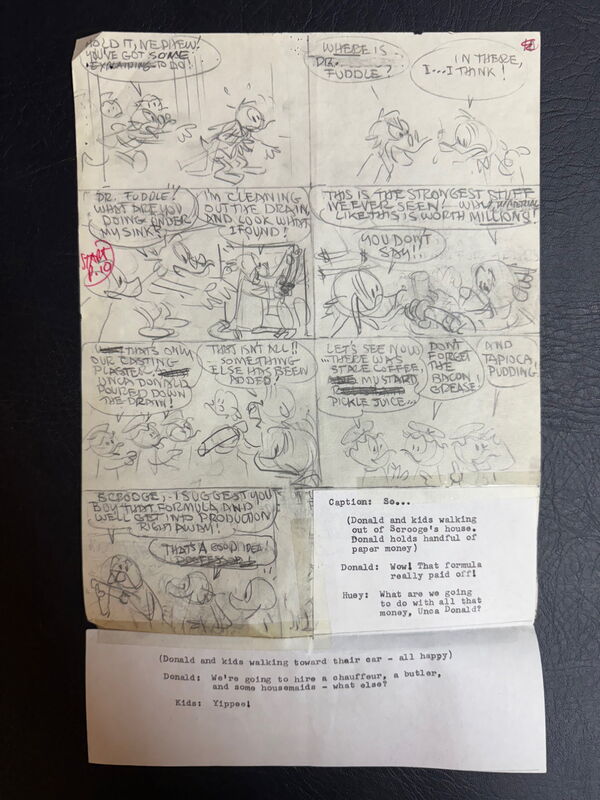 HOLD IT, NEPHEW!
YOU'VE GOT SOME
EXPLAINING TO DO!
WHERE IS
DR.
FUDDLE?
IN THERE,
I...I THINK!
DR. FUDDLE!
WHAT ARE YOU
DOING UNDER
MY SINK?
I'M CLEANING
OUT THE DRAIN
AND LOOK WHAT
I FOUND!
START
P. 10
THIS IS THE STRONGEST STUFF
I'VE EVER SEEN!
LIKE THIS IS WORTH MILLIONS!
YOU DON'T
SAY!!
THAT'S ONLY
OUR CASTING
PLASTER
UNCA DONALD
POURED DOWN
THE DRAIN!
THAT ISN'T ALL!!
...SOMETHING
ELSE HAS BEEN
ADDED!
LET'S SEE NOW
...THERE WAS
STALE COFFEE,
MUSTARD
PICKLE JUICE...
DON'T
FORGET
THE
BACON
GREASE!
AND
TAPIOCA
PUDDING!
SCROOGE, I SUGGEST YOU
BUY THAT FORMULA AND
WE'LL GET INTO PRODUCTION
RIGHT AWAY!
THAT'S A GOOD IDEA!
PROFESSOR!
Caption: So...
(Donald and kids walking
out of Scrooge's house.
Donald holds handful of
paper money)
Donald: Wow! That formula
really paid off!
Huey: What are we going
to do with all that
money, Unca Donald?
(Donald and kids walking toward their car - all happy)
Donald: We're going to hire a chauffeur, a butler,
and some housemaids - what else?
Kids: Yippee!